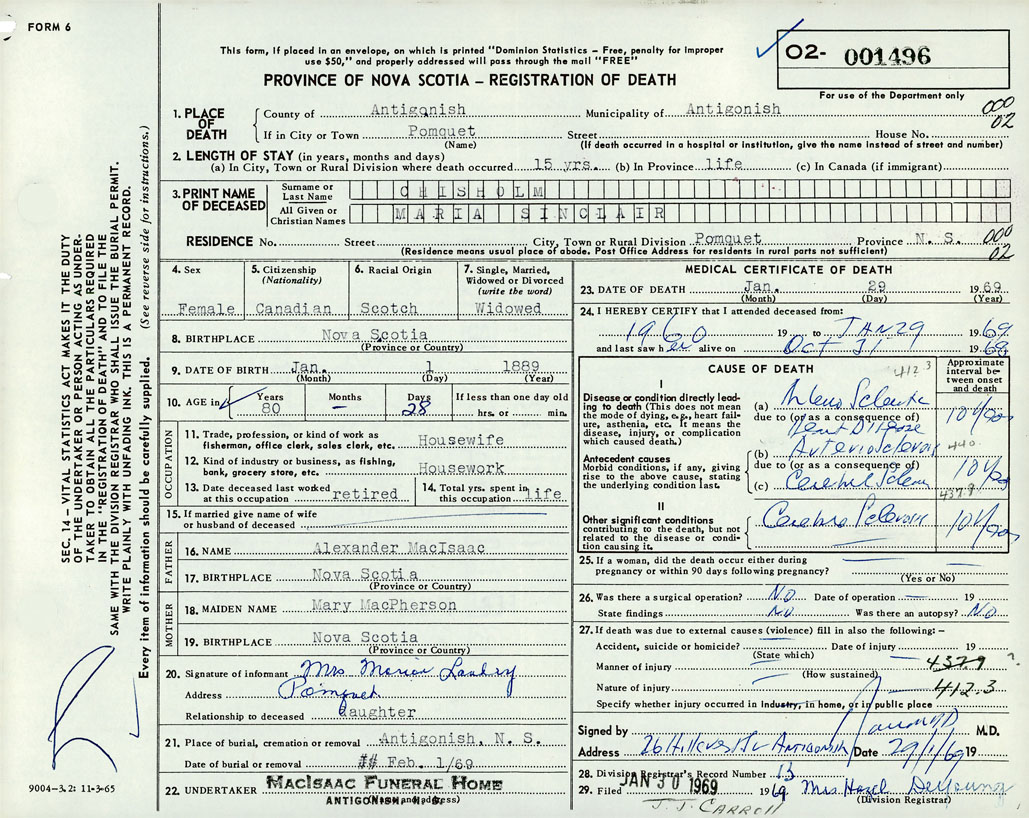 FORM 6
This form, if placed in an envelope, on which is printed "Dominion Statistics – Free, penalty for improper
use $50," and properly addressed will pass through the mail "FREE"
PROVINCE OF NOVA SCOTIA – REGISTRATION OF DEATH
O2- 001496
For use of the Department only
1. PLACE OF DEATH
County of Antigonish Municipality of Antigonish 000
If in City or Town Pomquet Street House No. 02
(Name) (If death occurred in a hospital or institution, give the name instead of street and number)
2. LENGTH OF STAY (in years, months and days)
(a) In City, Town or Rural Division where death occurred 15 yrs. (b) In Province life (c) In Canada (if immigrant)
3. PRINT NAME OF DECEASED
Surname or Last Name CHISHOLM
All Given or Christian Names MARIA SINCLAIR
RESIDENCE No. Street City, Town or Rural Division Pomquet Province N. S. 000
(Residence means usual place of abode. Post Office Address for residents in rural parts not sufficient) 02
4. Sex
Female
5. Citizenship (Nationality)
Canadian
6. Racial Origin
Scotch
7. Single, Married, Widowed or Divorced (write the word)
Widowed
8. BIRTHPLACE Nova Scotia
(Province or Country)
9. DATE OF BIRTH Jan. 1 1889
(Month) (Day) (Year)
10. AGE in Years 80 Months – Days 28 If less than one day old
hrs. or min.
OCCUPATION
11. Trade, profession, or kind of work as fisherman, office clerk, sales clerk, etc. Housewife
12. Kind of industry or business, as fishing, bank, grocery store, etc. Housework
13. Date deceased last worked at this occupation retired
14. Total yrs. spent in this occupation life
15. If married give name of wife or husband of deceased
FATHER
16. NAME Alexander MacIsaac
17. BIRTHPLACE Nova Scotia
(Province or Country)
MOTHER
18. MAIDEN NAME Mary MacPherson
19. BIRTHPLACE Nova Scotia
(Province or Country)
20. Signature of informant Mrs Landry
Address Pomquet
Relationship to deceased daughter
21. Place of burial, cremation or removal Antigonish, N. S.
Date of burial or removal ## Feb. 1/69
22. UNDERTAKER MacIsaac Funeral Home
ANTIGONISH, N. S.
(Name and address)
MEDICAL CERTIFICATE OF DEATH
23. DATE OF DEATH Jan. 29 1969
(Month) (Day) (Year)
24. I HEREBY CERTIFY that I attended deceased from:
1960 19 to JAN 29 1969
and last saw her alive on Oct 31 1968
CAUSE OF DEATH 412 3
Approximate interval between onset and death
I
Disease or condition directly leading to death (This does not mean the mode of dying, e.g., heart failure, asthenia, etc. It means the disease, injury, or complication which caused death.)
(a)
due to (or as a consequence of)
Heart Disease
Antecedent causes
Morbid conditions, if any, giving rise to the above cause, stating the underlying condition last.
(b) 440.
due to (or as a consequence of)
(c)
437.9
II
Other significant conditions contributing to the death, but not related to the disease or condition causing it.
25. If a woman, did the death occur either during pregnancy or within 90 days following pregnancy?
(Yes or No)
26. Was there a surgical operation? NO Date of operation — 19
State findings NO Was there an autopsy? NO
27. If death was due to external causes (violence) fill in also the following: –
Accident, suicide or homicide? Date of injury 19
(State which)
Manner of injury 437.9 ?
(How sustained)
Nature of injury 412.3
Specify whether injury occurred in Industry, in home, or in public place
Signed by M.D.
Address Antigonish Date 29/1/69 19
28. Division Registrar's Record Number 13
29. Filed JAN 30 1969 1969 Mrs Hazel DeYoung
(Division Registrar)
J. J. CARROLL
SEC. 14 – VITAL STATISTICS ACT MAKES IT THE DUTY
OF THE UNDERTAKER OR PERSON ACTING AS UNDER-
TAKER TO OBTAIN ALL THE PARTICULARS REQUIRED
IN THE "REGISTRATION OF DEATH" AND TO FILE THE
SAME WITH THE DIVISION REGISTRAR WHO SHALL ISSUE THE BURIAL PERMIT.
WRITE PLAINLY WITH UNFADING INK. THIS IS A PERMANENT RECORD.
Every item of information should be carefully supplied. (See reverse side for instructions.)
9004-3.2: 11-3-65